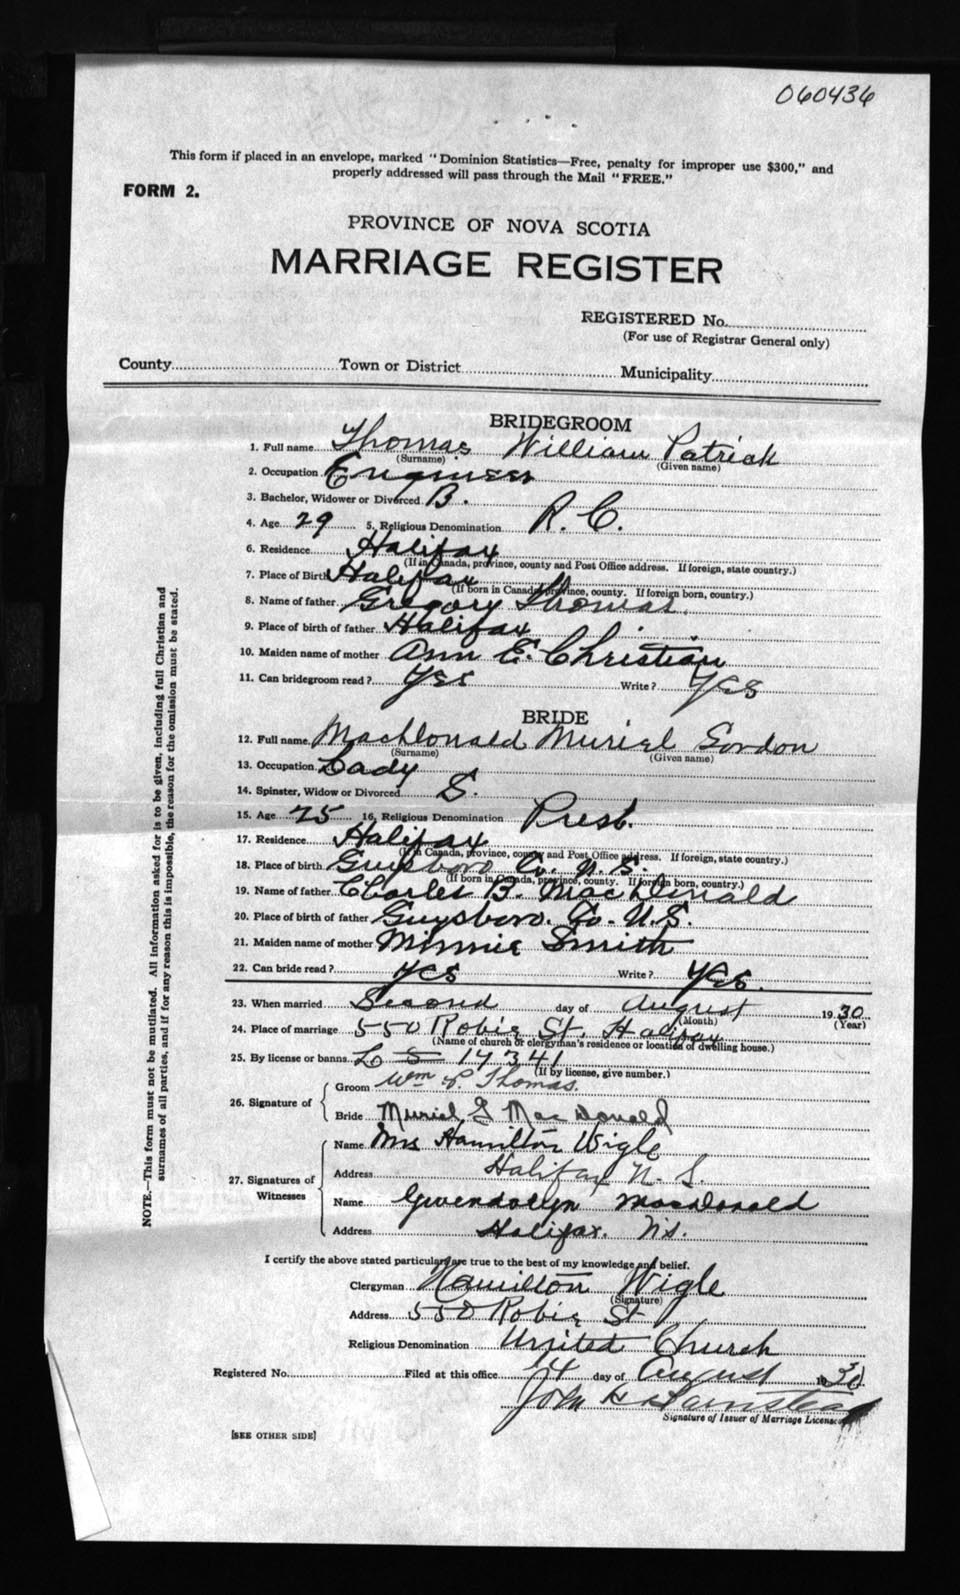 060436
This form if placed in an envelope, marked "Dominion Statistics—Free, penalty for improper use $300," and
properly addressed will pass through the Mail "FREE."
FORM 2.
PROVINCE OF NOVA SCOTIA
MARRIAGE REGISTER
REGISTERED No.
(For use of Registrar General only)
County Town or District Municipality
BRIDEGROOM
1. Full name Thomas William Patrick
(Surname) (Given name)
2. Occupation Engineer
3. Bachelor, Widower or Divorced B.
4. Age 29 5. Religious Denomination R. C.
6. Residence Halifax
(If in Canada, province, county and Post Office address. If foreign, state country.)
7. Place of Birth Halifax
(If born in Canada, province, county. If foreign born, country.)
8. Name of father Gregory Thomas.
9. Place of birth of father Halifax
10. Maiden name of mother Ann E. Christian
11. Can bridegroom read? Yes Write? Yes
BRIDE
12. Full name MacDonald Muriel Gordon
(Surname) (Given name)
13. Occupation Lady
14. Spinster, Widow or Divorced S.
15. Age 25 16. Religious Denomination Presb.
17. Residence Halifax
(If in Canada, province, county and Post Office address. If foreign, state country.)
18. Place of birth Guysboro Co. N. S.
(If born in Canada, province, county. If foreign born, country.)
19. Name of father Charles B. MacDonald
20. Place of birth of father Guysboro. Co. N.S.
21. Maiden name of mother Minnie Smith
22. Can bride read? Yes Write? Yes.
23. When married Second day of August 1930
(Month) (Year)
24. Place of marriage 550 Robie St, Halifax
(Name of church or clergyman's residence or location of dwelling house.)
25. By license or banns L 17341
(If by license, give number.)
26. Signature of
Groom Wm P. Thomas.
Bride Muriel G MacDonald
27. Signatures of Witnesses
Name Mrs Hamilton Wigle
Address Halifax N. S.
Name Gwendolyn MacDonald
Address Halifax. N.S.
I certify the above stated particulars are true to the best of my knowledge and belief.
Clergyman Hamilton Wigle
(Signature)
Address 550 Robie St
Religious Denomination United Church
Registered No. Filed at this office 14 day of August 1930
John H Barnstead
Signature of Issuer of Marriage Licenses
[SEE OTHER SIDE]
NOTE.—This form must not be mutilated. All information asked for is to be given, including full Christian and
surnames of all parties, and if for any reason this is impossible, the reason for the omission must be stated.